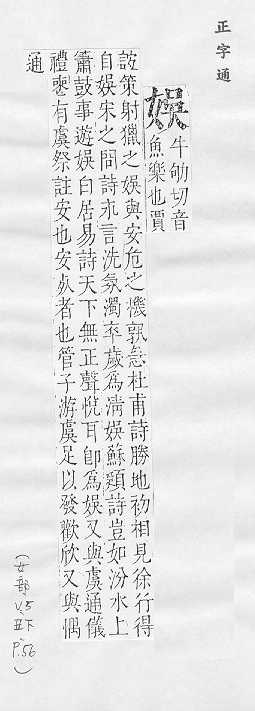 正字通
娛 牛劬切音
魚樂也賈
誼策射獵之娛與安危之機孰急杜甫詩勝地初相見徐行得
自娛宋之問詩永言洗氛濁卒歲爲淸娛蘇頲詩豈如汾水上
簫鼓事遊娛白居易詩天下無正聲悅耳卽爲娛又與虞通儀
禮有虞祭註安也安者也管子游虞足以發歡欣又與偶
通
(女部
V.5
丑下
P.56)